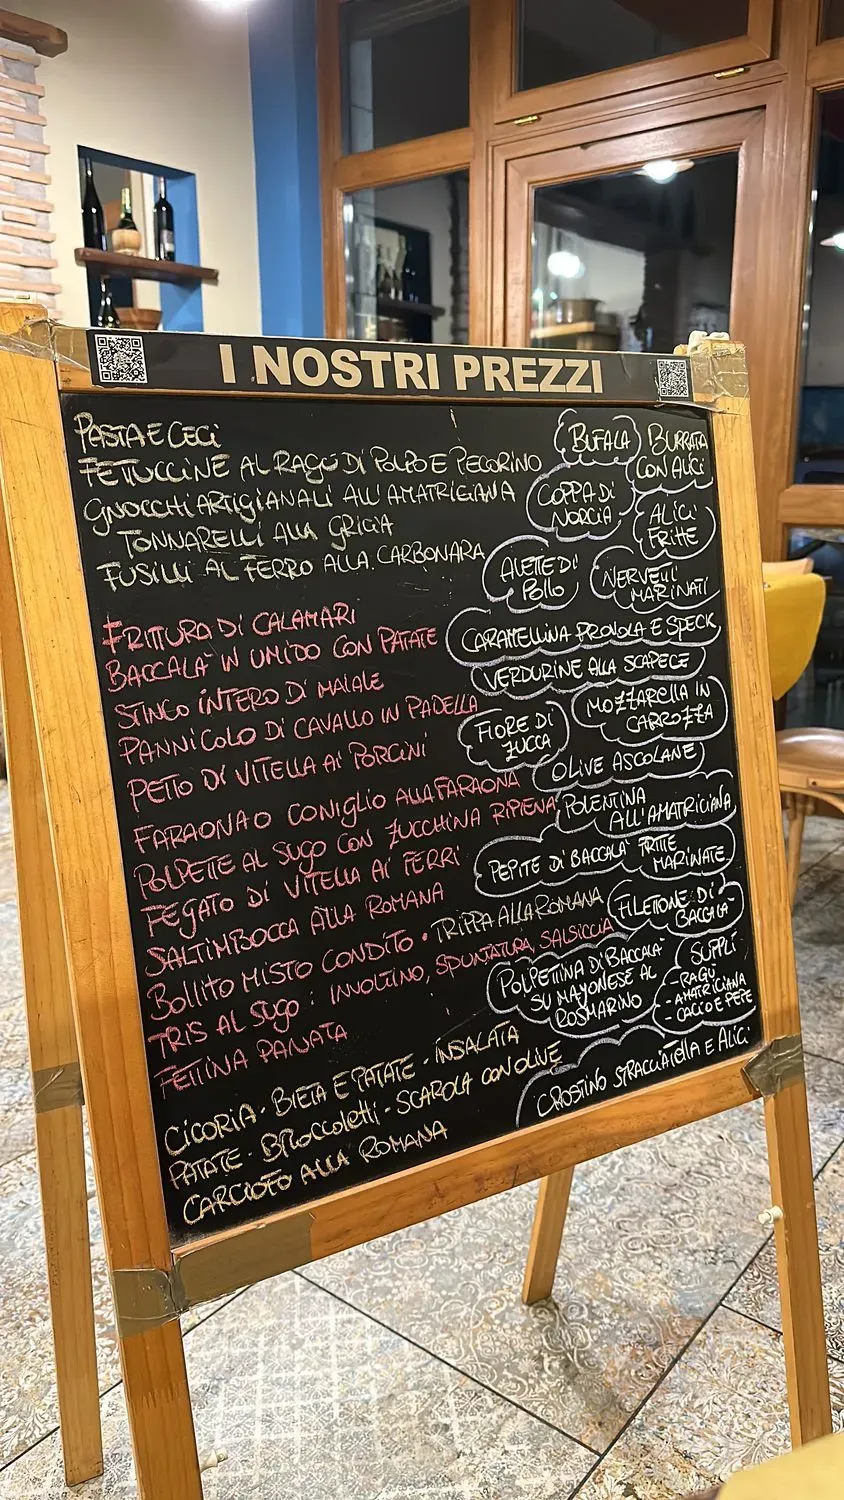 I NOSTRI PREZZI
PASTA E CECI
FETTUCCINE AL RAGÙ DI POLPO E PECORINO
GNOCCHI ARTIGIANALI ALL'AMATRICIANA
TONNARELLI ALLA GRICIA
FUSILLI AL FERRO ALLA CARBONARA
FRITTURA DI CALAMARI
BACCALA' IN UMIDO CON PATATE
STINCO INTERO DI MAIALE
PANNICOLO DI CAVALLO IN PADELLA
PETTO DI VITELLA AI PORCINI
FARAONA O CONIGLIO ALLA FARAONA
POLPETTE AL SUGO CON ZUCCHINA RIPIENA
FEGATO DI VITELLA AI FERRI
SALTIMBOCCA ALLA ROMANA
BOLLITO MISTO CONDITO • TRIPPA ALLA ROMANA
TRIS AL SUGO: INVOLTINO, SPUNTATURA, SALSICCIA
FETTINA PANATA
CICORIA - BIETA E PATATE - INSALATA
PATATE - BROCCOLETTI - SCAROLA CON OLIVE
CARCIOFO ALLA ROMANA
BUFALA
BURRATA
CON ALICI
COPPA DI
NORCIA
ALICI
FRITTE
ALETTE DI
POLLO
NERVETTI
MARINATI
CARAMELLINA PROVOLA E SPECK
VERDURINE ALLA SCAPECE
FIORE DI
ZUCCA
MOZZARELLA IN
CARROZZA
OLIVE ASCOLANE
POLENTINA
ALL'AMATRICIANA
PEPITE DI BACCALA' FRITTE
MARINATE
FILETTONE DI
BACCALA'
POLPETTINA DI BACCALA'
SU MAYONESE AL
ROSMARINO
SUPPLÌ
- RAGÙ
- AMATRICIANA
- CACIO E PEPE
CROSTINO STRACCIATELLA E ALICI